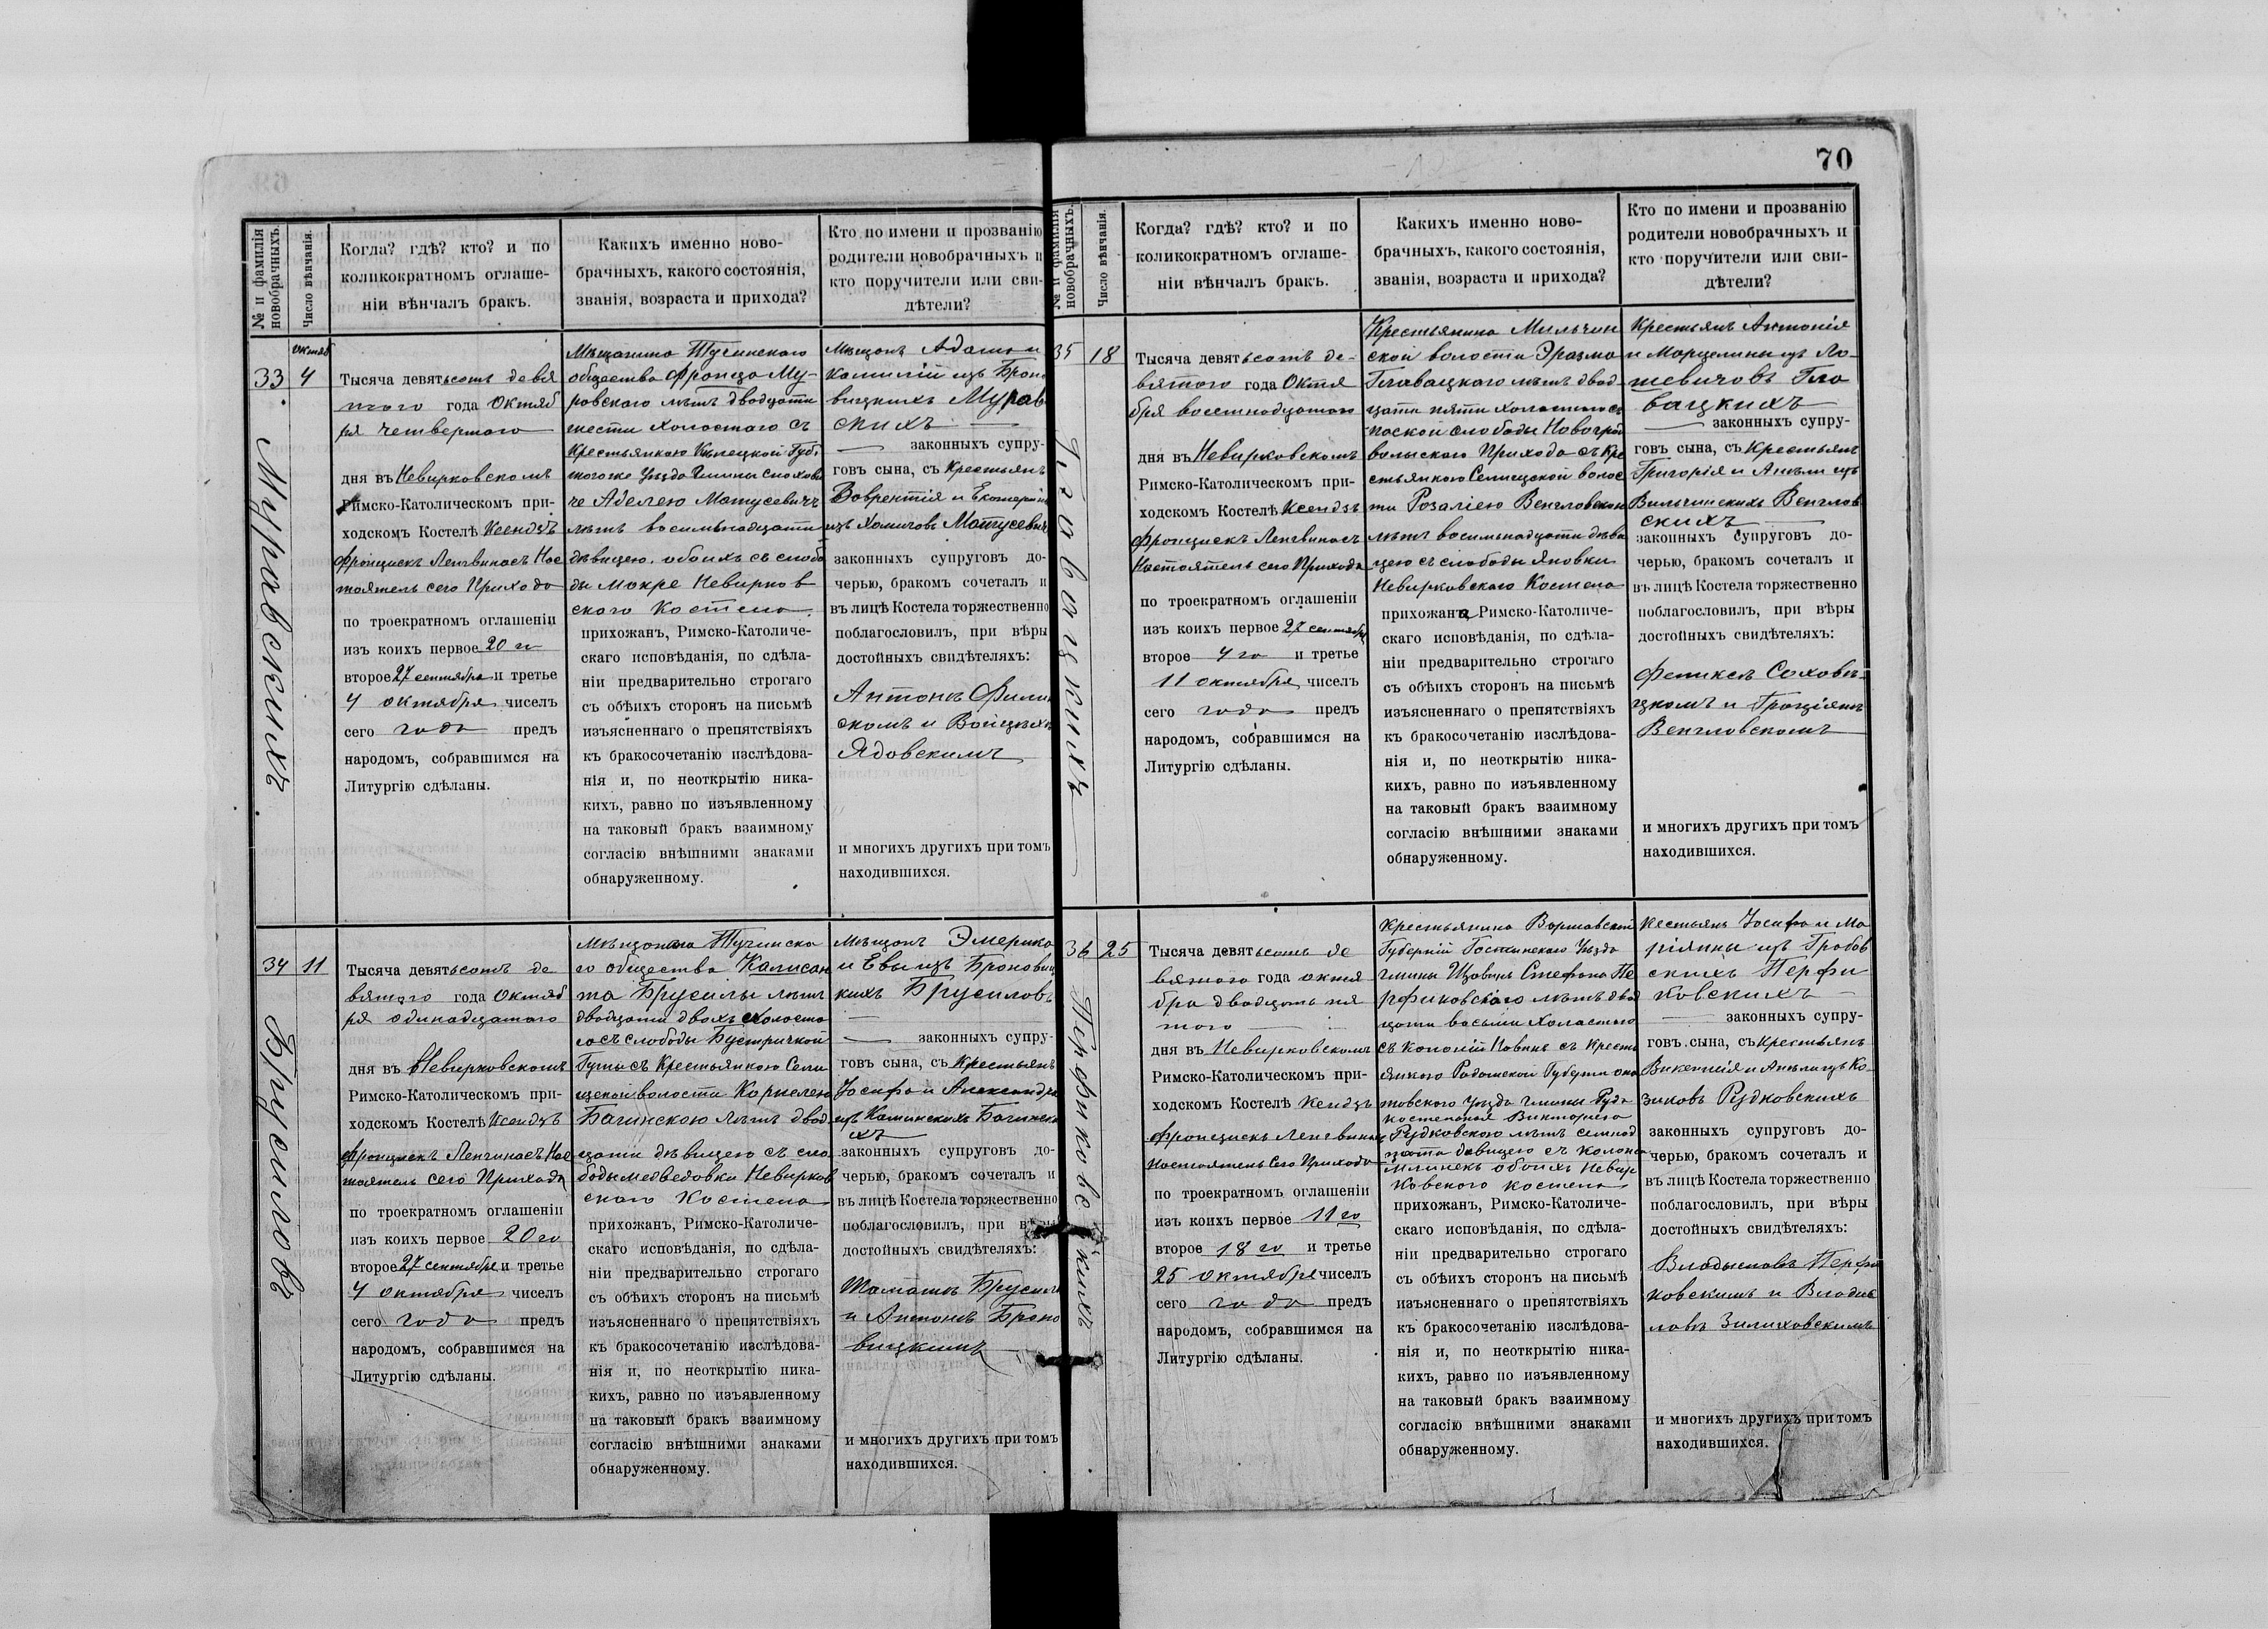 70
№ и фамилія новобрачныхъ.
Число вѣнчанія.
Когда? гдѣ? кто? и по
коликократномъ оглаше-
ніи вѣнчалъ бракъ.
Каκихъ именно ново-
брачныхъ, какого состоянія,
званія, возраста и прихода?
Кто по имени и прозванію
родители новобрачныхъ и
кто поручители или сви-
дѣтели?
33
Муравскихъ
Октяб
4
Тысяча девятьсотъ девя
таго года Октяб
ря четвертаго
дня въ Невирковскомъ
Римско-Католическом при-
ходском Костелѣ Ксендзъ
Францискъ Ленгвинасъ Нас
тоятель сего Прихода
по троекратном оглашеніи
изъ коихъ первое 20 го
второе 27 сентября и третье
4 октября чиселъ
сего года предъ
народомъ, собравшимся на
Литургію сдѣланы.
Мѣщанина Тучинскаго
общества Франца Му-
равскаго лѣтъ двадцати
шести холостаго съ
Крестьянкою Кѣлецкой Губ.
тогоже Уѣзда Гмины
че Аделею Матусевичъ
лѣтъ восемьнадцати
дѣвицею. обоихъ съ слобо
ды Мокре Невирков
скаго Костела
прихожанъ, Римско-Католиче-
скаго исповѣданія, по сдѣла-
ніи предварительно строгаго
съ обѣихъ сторонъ на письмѣ
изъясненнаго о препятствіяхъ
къ бракосочетанію изслѣдова-
нія и, по неоткрытію ника-
кихъ, равно по изъявленному
на таковый бракъ взаимному
согласію внѣшними знаками
обнаруженному.
Мѣщанъ Адама и
изъ Брон
вицкихъ Мурав
скихъ
законныхъ супру-
говъ сына, съ Крестьянъ
Вавректія и Екатерин
изъ Хамичовъ Матусевич
законныхъ супруговъ до-
черью, бракомъ сочеталъ и
въ лицѣ Костела торжественно
поблагословилъ, при вѣры
достойныхъ свидѣтеляхъ:
Антонъ Фили
скомъ и Войцѣхъ
Ядовскимъ
и многихъ другихъ при томъ
находившихся.
34
Брусиловъ
11
Тысяча девятьсотъ де
вятаго года Октяб
ря одинадцатаго
дня въ Невирковскомъ
Римско-Католическом при-
ходском Костелѣ Ксендзъ
Францискъ Ленгвинасъ Нас
тоятель сего Прихода
по троекратном оглашеніи
изъ коихъ первое 20 го
второе 27 сентября и третье
4 октября чиселъ
сего года предъ
народомъ, собравшимся на
Литургію сдѣланы.
Мѣщанина Тучинска
го общества Калисан
та Брусилы лѣтъ
двадцати двохъ холоста
го съ слободы Быстричкой
Гуты съ Крестьянкою Сели
щской волости Корнелею
Багинскою лѣтъ двад
цати дѣвицею съ сло
боды Медведовка Невирков
скаго Костела
прихожанъ, Римско-Католиче-
скаго исповѣданія, по сдѣла-
ніи предварительно строгаго
съ обѣихъ сторонъ на письмѣ
изъясненнаго о препятствіяхъ
къ бракосочетанію изслѣдова-
нія и, по неоткрытію ника-
кихъ, равно по изъявленному
на таковый бракъ взаимному
согласію внѣшними знаками
обнаруженному.
Мѣщанъ Эмерика
и Евы изъ Броновиц
кихъ Брусиловъ
законныхъ супру-
говъ сына, съ Крестьянъ
Іосифа и Александры
изъ Каминскихъ Багински
хъ
законныхъ супруговъ до-
черью, бракомъ сочеталъ и
въ лицѣ Костела торжественно
поблагословилъ, при вѣры
достойныхъ свидѣтеляхъ:
Томашъ Брусила
и Антонъ Броно
вицкимъ
и многихъ другихъ при томъ
находившихся.
№ и фамилія новобрачныхъ.
Число вѣнчанія.
Когда? гдѣ? кто? и по
коликократномъ оглаше-
ніи вѣнчалъ бракъ.
Какихъ именно ново-
брачныхъ, какого состоянія,
званія, возраста и прихода?
Кто по имени и прозванію
родители новобрачныхъ и
кто поручители или сви-
дѣтели?
35
Главацкихъ
18
Тысяча девятьсотъ де-
вятаго года Октя
бря восемнадцатаго
дня въ Невирковскомъ
Римско-Католическом при-
ходском Костелѣ Ксендзъ
Францискъ Ленгвинасъ
Настоятель сего Прихода
по троекратном оглашеніи
изъ коихъ первое 27 сентября
второе 4 го и третье
11 октября чиселъ
сего года предъ
народомъ, собравшимся на
Литургію сдѣланы.
Крестьянина Мильчин
ской волости Эразма
Главацкаго лѣтъ двад
цати пяти холостаго съ
слободы Новоград
волынскаго Прихода съ Кре
стьянкою Селищской волос
ти Розаліею Венгловскою
лѣтъ восимнадцати дѣви
цею съ слободы Яновки
Невирковскаго Костела
прихожанъ, Римско-Католиче-
скаго исповѣданія, по сдѣла-
ніи предварительно строгаго
съ обѣихъ сторонъ на письмѣ
изъясненнаго о препятствіяхъ
къ бракосочетанію изслѣдова-
нія и, по неоткрытію ника-
кихъ, равно по изъявленному
на таковый бракъ взаимному
согласію внѣшними знаками
обнаруженному.
Крестьянъ Антонія
и Марцелины изъ Ло-
шевичовъ Гла
вацкихъ
законныхъ супру-
говъ сына, съ Крестьянъ
Григорія и Анѣли изъ
Вильчинскихъ Венглов
скихъ
законныхъ супруговъ до-
черью, бракомъ сочеталъ и
въ лицѣ Костела торжественно
поблагословилъ, при вѣры
достойныхъ свидѣтеляхъ:
Феликсъ Соховѣ-
цкомъ и Граціянъ
Венгловскомъ
и многихъ другихъ при томъ
находившихся.
36
Перфиковскихъ
25
Тысяча девятьсотъ де
вятаго года октя
бря двадцать пя
таго
дня въ Невирковскомъ
Римско-Католическом при-
ходском Костелѣ Ксендзъ
Францискъ Ленгвинасъ
Настоятель Сего Прихода
по троекратном оглашеніи
изъ коихъ первое 11 го
второе 18 го и третье
25 октября чиселъ
сего года предъ
народомъ, собравшимся на
Литургію сдѣланы.
Крестьянина Варшавской
Губерній Гостинскаго Уѣзда
гмины Щавинъ Стефана Пе
рфиковскаго лѣтъ два
цати восьми Холостаго
съ колоній Повынь съ Кресть
янкою Радомской Губерни Опа
товского Уѣзда Гмины Руда
Костельная Викторіею
Рудковскою лѣтъ семнад
цати дѣвицею съ Колони
Млинекъ обоихъ Невир
ковского костела
прихожанъ, Римско-Католиче-
скаго исповѣданія, по сдѣла-
ніи предварительно строгаго
съ обѣихъ сторонъ на письмѣ
изъясненнаго о препятствіяхъ
къ бракосочетанію изслѣдова-
нія и, по неоткрытію ника-
кихъ, равно по изъявленному
на таковый бракъ взаимному
согласію внѣшними знаками
обнаруженному.
Кестьянъ Іосифа и Ма
ріянны изъ Грабов
скихъ Перфи
ковскихъ
законныхъ супру-
говъ сына, съ Крестьянъ
Викентія и Анѣли изъ Ко-
зиковъ Рудковскихъ
законныхъ супруговъ до-
черью, бракомъ сочеталъ и
въ лицѣ Костела торжественно
поблагословилъ, при вѣры
достойныхъ свидѣтеляхъ:
Владыславъ Перфи
ковскимъ и Владис
лавъ Зилиховскимъ
и многихъ другихъ при томъ
находившихся.